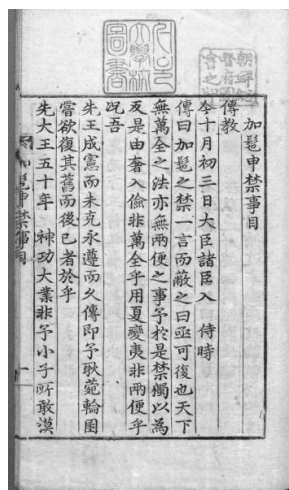 加髢申禁事目
傳教
今十月初三日大臣諸臣入　侍時
傳曰加髢之禁一言而蔽之曰亟可復也天下
無萬全之法亦無兩便之事予於是禁獨以爲
反是由奢入儉非萬全乎用夏變夷非兩便乎
况吾
先王成憲而未克永遵而久傳即予耿菀輪囷
嘗欲復其舊而後已者於乎
先大王五十年　神功大業非予小子所敢漠
加髢申禁事目
一